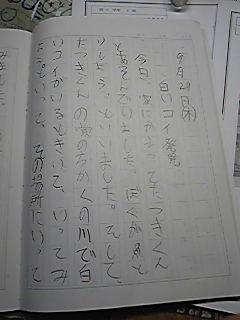 9月29日(木)
白いコイ発見
今日、家にかえってたつきくん
とあそんでいました。ぼくが魚と
りしよう。といいました。そして、
たつきくんの家のちかくの川で白
いコイがいるときいて、いってみ
よう。といって、その場所にいって